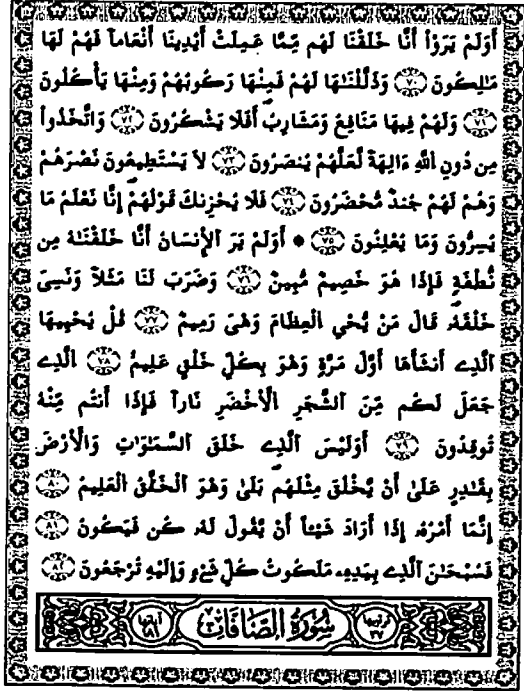 أَوَلَمْ يَرَوْاْ أَنَّا خَلَقْنَا لَهُم مِّمَّا عَمِلَتْ أَيْدِينَا أَنْعَٰماً فَهُمْ لَهَا
مَٰلِكُونَ ٧٠ وَذَلَّلْنَٰهَا لَهُمْ فَمِنْهَا رَكُوبُهُمْ وَمِنْهَا يَأْكُلُونَ
٧١ وَلَهُمْ فِيهَا مَنَٰفِعُ وَمَشَارِبُ أَفَلَا يَشْكُرُونَ ٧٢ وَاتَّخَذُواْ
مِن دُونِ اللَّهِ ءَالِهَةً لَّعَلَّهُمْ يُنصَرُونَ ٧٣ لَا يَسْتَطِيعُونَ نَصْرَهُمْ
وَهُمْ لَهُمْ جُندٌ مُّحْضَرُونَ ٧٤ فَلَا يُحْزِنكَ قَوْلُهُمْ إِنَّا نَعْلَمُ مَا
يُسِرُّونَ وَمَا يُعْلِنُونَ ٧٥ * أَوَلَمْ يَرَ الْإِنسَٰنُ أَنَّا خَلَقْنَٰهُ مِن
نُّطْفَةٍ فَإِذَا هُوَ خَصِيمٌ مُّبِينٌ ٧٦ وَضَرَبَ لَنَا مَثَلًا وَنَسِىَ
خَلْقَهُ قَالَ مَنْ يُّحْيِ الْعِظَٰمَ وَهْىَ رَمِيمٌ ٧٧ قُلْ يُحْيِيهَا
الَّذِے أَنشَأَهَا أَوَّلَ مَرَّةٍ وَهْوَ بِكُلِّ خَلْقٍ عَلِيمٌ ٧٨ الَّذِے
جَعَلَ لَكُم مِّنَ الشَّجَرِ الْأَخْضَرِ نَاراً فَإِذَا أَنتُم مِّنْهُ
تُوقِدُونَ ٧٩ أَوَلَيْسَ الَّذِے خَلَقَ السَّمَٰوَٰتِ وَالْأَرْضَ
بِقَٰدِرٍ عَلَىٰ أَنْ يَّخْلُقَ مِثْلَهُم بَلَىٰ وَهْوَ الْخَلَّٰقُ الْعَلِيمُ ٨٠
إِنَّمَا أَمْرُهُ إِذَا أَرَادَ شَيْئاً أَنْ يَّقُولَ لَهُ كُن فَيَكُونُ ٨١
فَسُبْحَٰنَ الَّذِے بِيَدِهِ مَلَكُوتُ كُلِّ شَيْءٍ وَإِلَيْهِ تُرْجَعُونَ ٨٢
ترتيبها ٣٧ سُورَةُ الصَّافَّاتِ آياتها